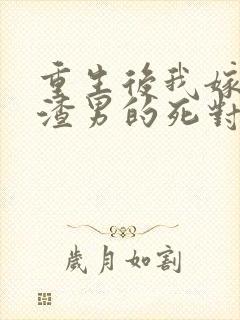 重生後我嫁
渣男的死對
歲月如割